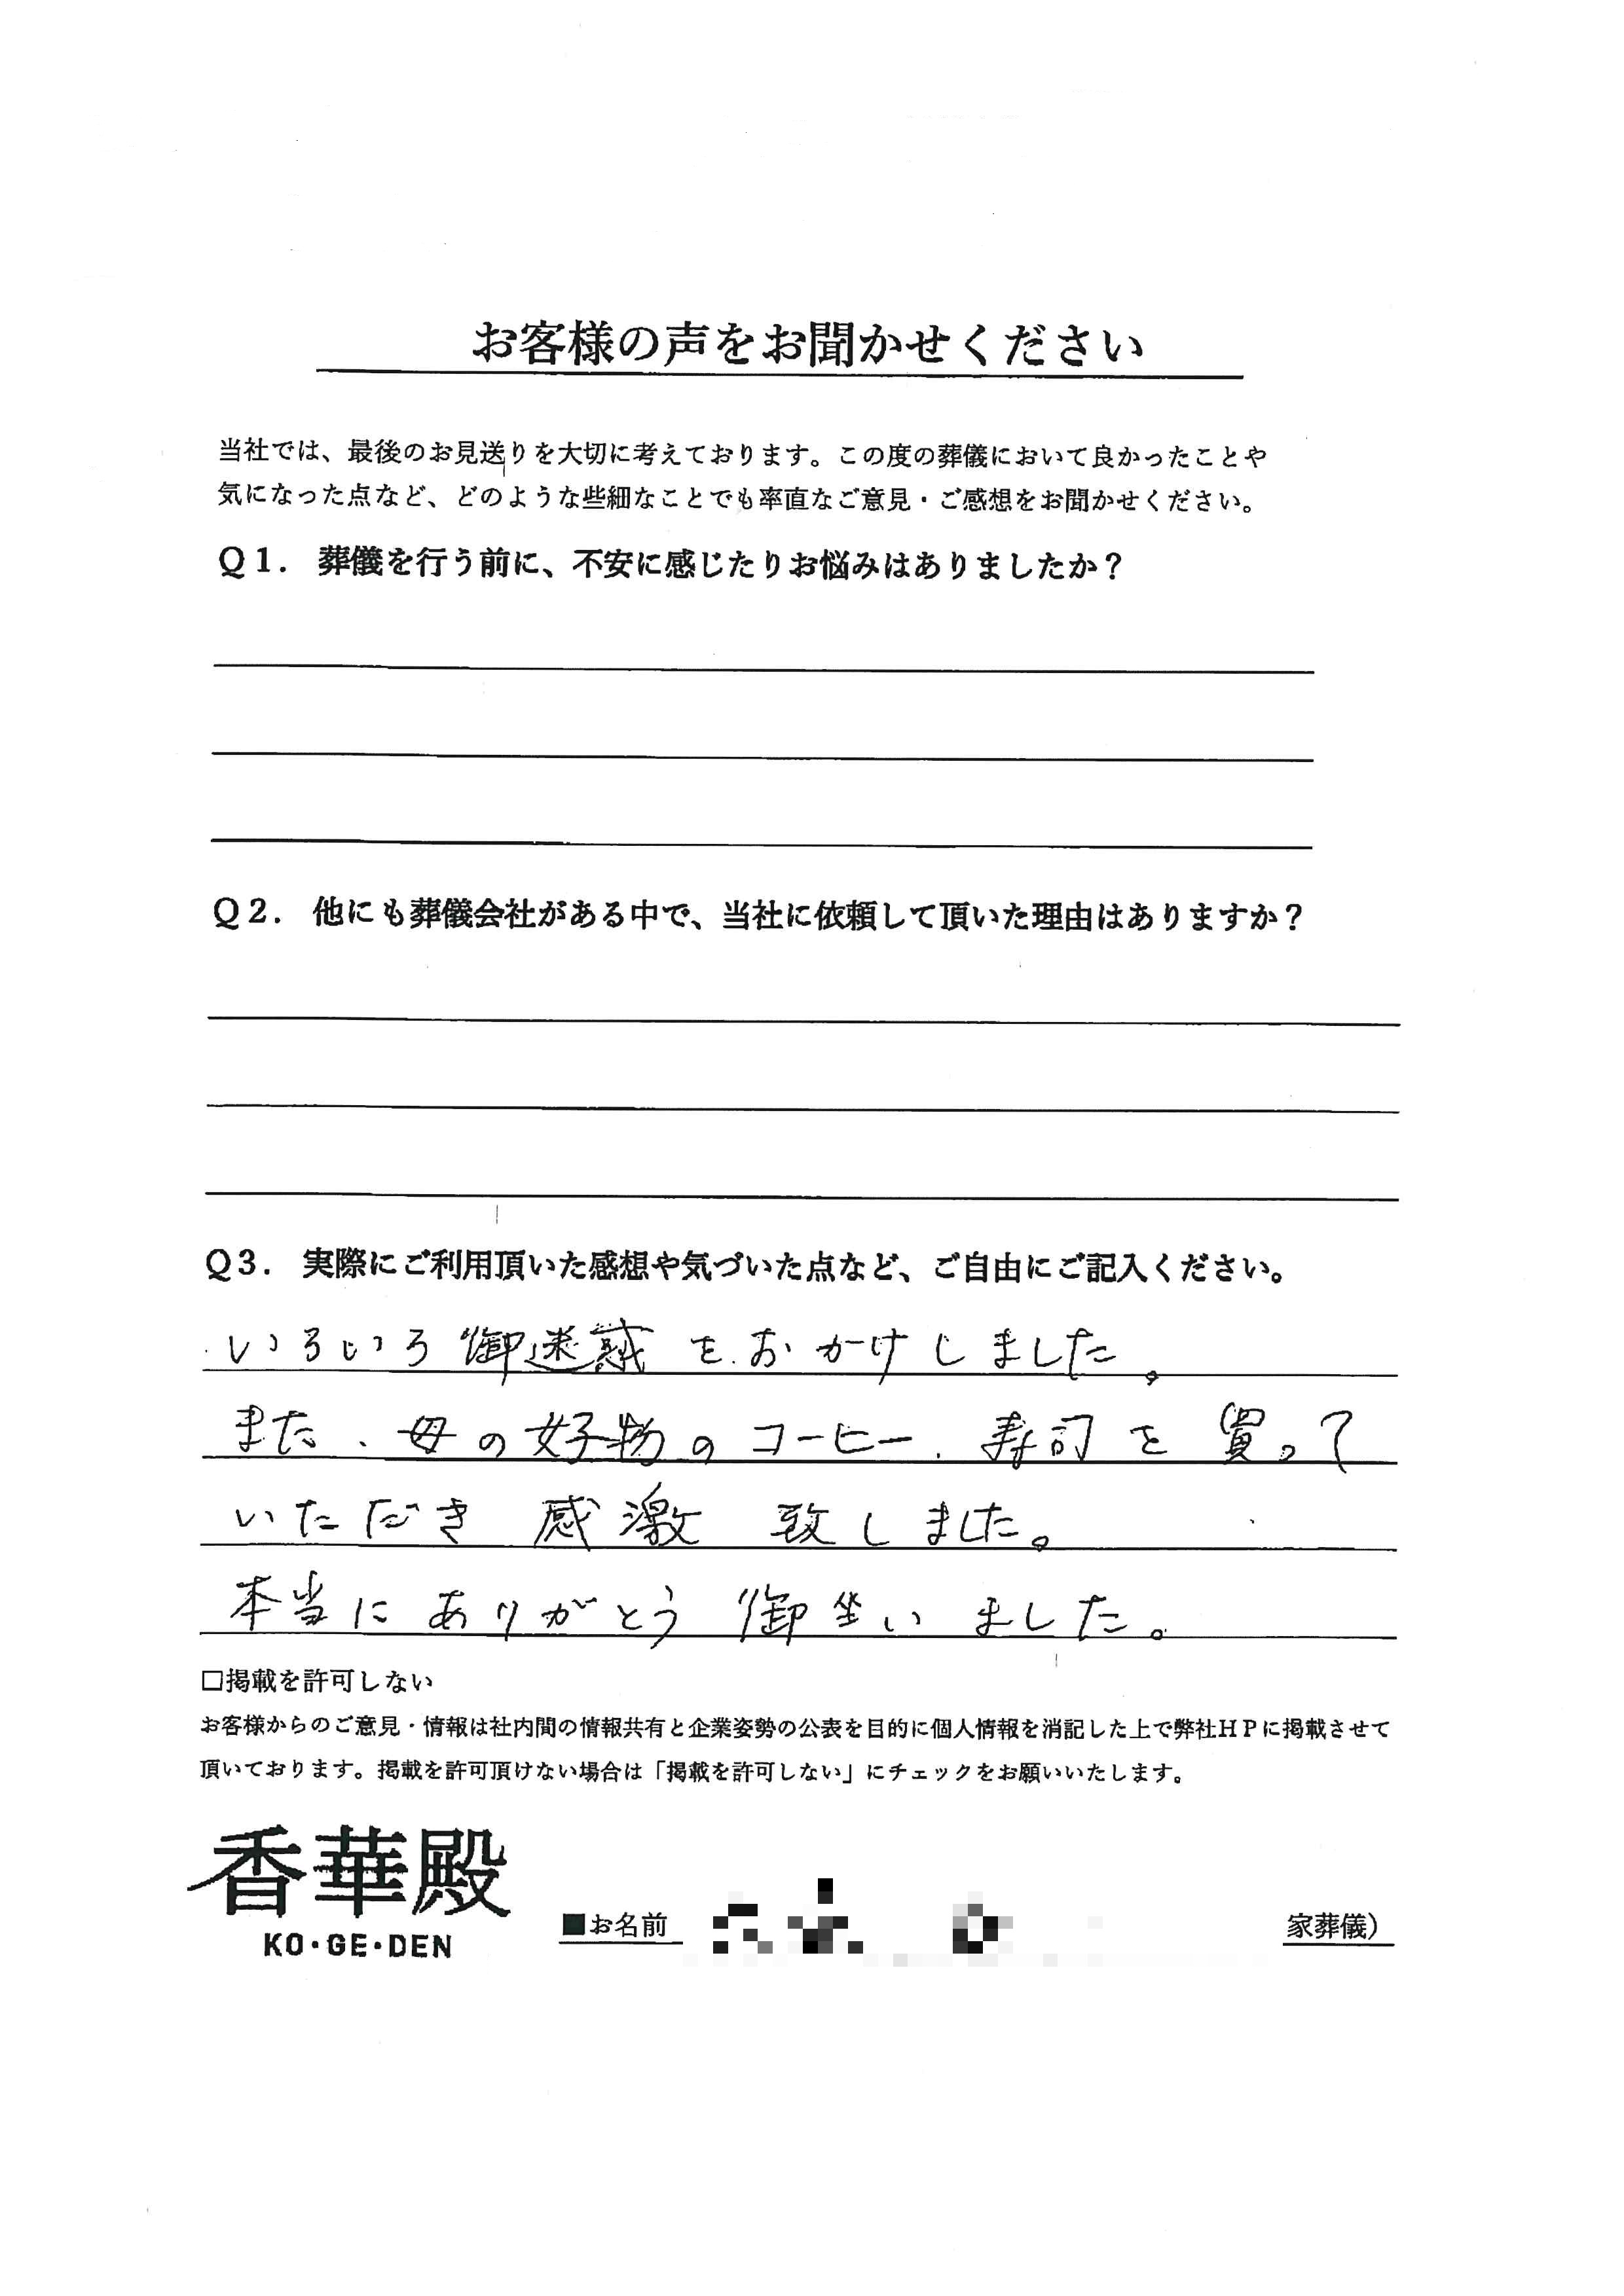 お客様の声をお聞かせください
当社では、最後のお見送りを大切に考えております。この度の葬儀において良かったことや
気になった点など、どのような些細なことでも率直なご意見・ご感想をお聞かせください。
Q1. 葬儀を行う前に、不安に感じたりお悩みはありましたか？
Q2. 他にも葬儀会社がある中で、当社に依頼して頂いた理由はありますか？
Q3. 実際にご利用頂いた感想や気づいた点など、ご自由にご記入ください。
いろいろ御迷惑をおかけしました。
また、母の好物のコーヒー、寿司を買って
いただき感激致しました。
本当にありがとう御坐いました。
□掲載を許可しない
お客様からのご意見・情報は社内間の情報共有と企業姿勢の公表を目的に個人情報を消記した上で弊社HPに掲載させて
頂いております。掲載を許可頂けない場合は「掲載を許可しない」にチェックをお願いいたします。
香華殿
KO・GE・DEN
■お名前 家葬儀）